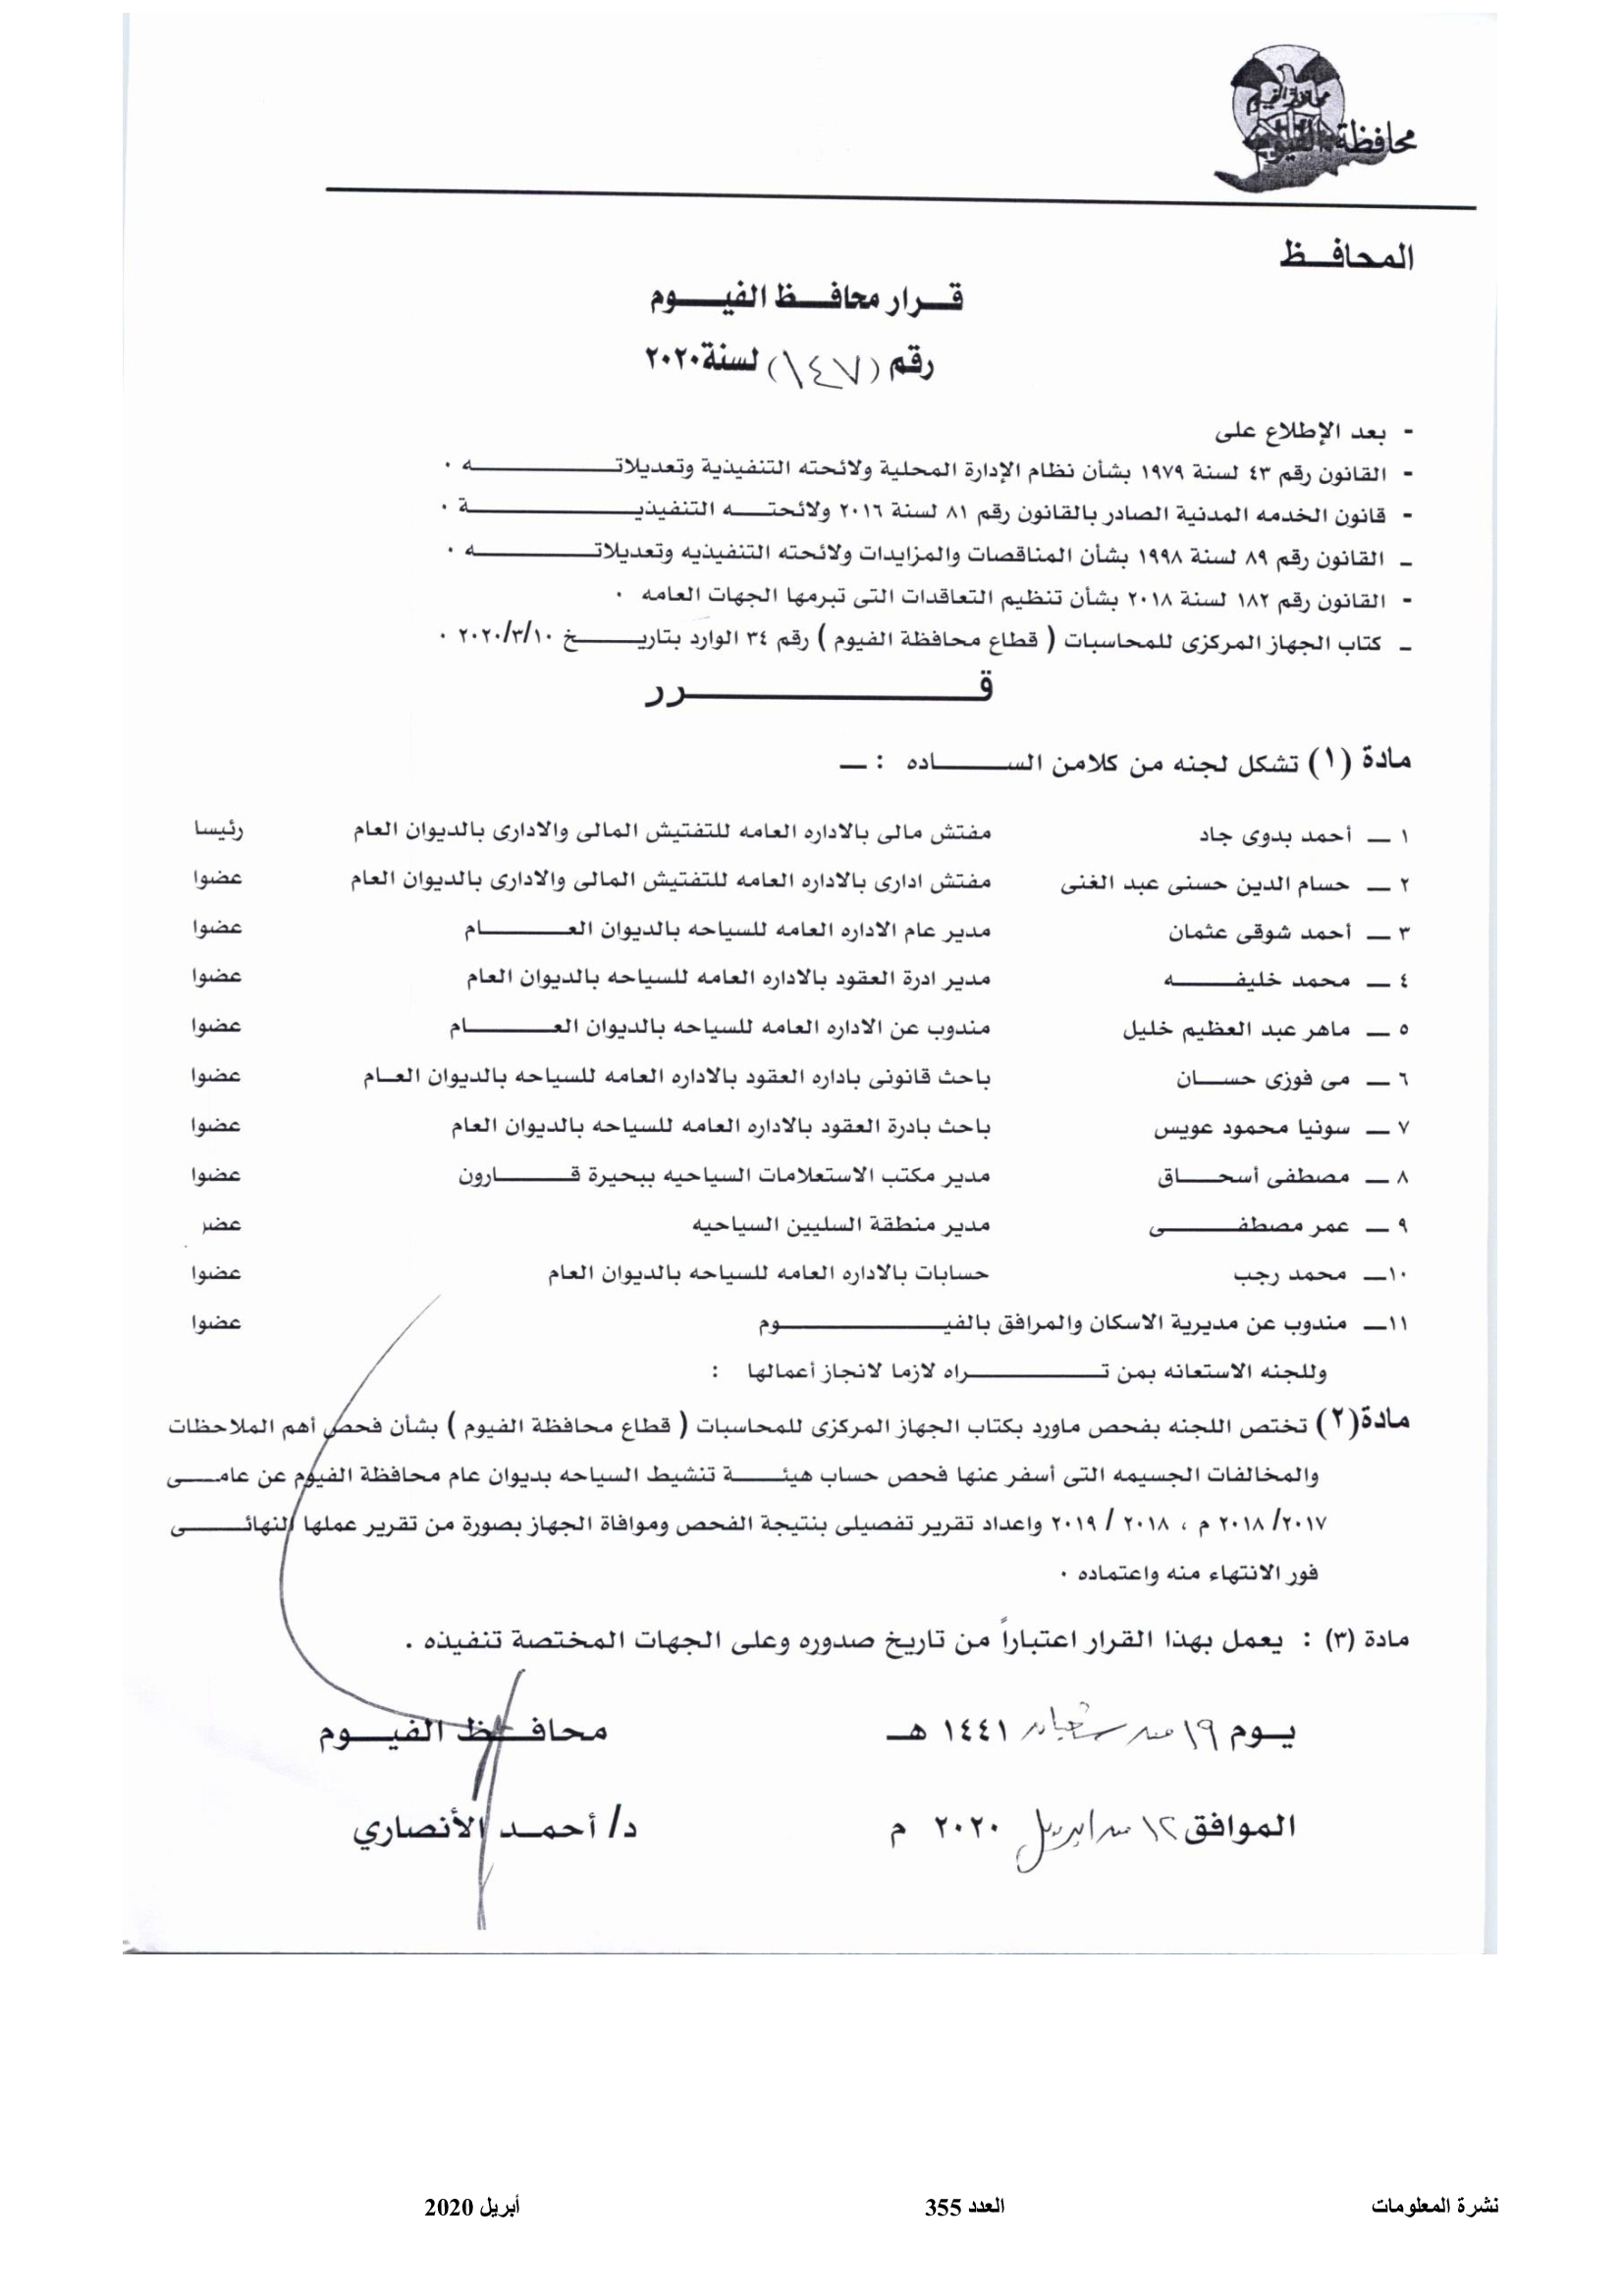 محافظة الفيوم
محافظة الفيوم
المحافـــظ
قـــرار محافـــظ الفيـــوم
رقم (١٤٧) لسنة٢٠٢٠
- بعد الإطلاع على
- القانون رقم ٤٣ لسنة ١٩٧٩ بشأن نظام الإدارة المحلية ولائحته التنفيذية وتعديلاتــــــــه ٠
- قانون الخدمه المدنية الصادر بالقانون رقم ٨١ لسنة ٢٠١٦ ولائحتـــه التنفيذيــــــــــة ٠
ـ القانون رقم ٨٩ لسنة ١٩٩٨ بشأن المناقصات والمزايدات ولائحته التنفيذيه وتعديلاتــــــــه ٠
- القانون رقم ١٨٢ لسنة ٢٠١٨ بشأن تنظيم التعاقدات التى تبرمها الجهات العامه ٠
ـ كتاب الجهاز المركزى للمحاسبات ( قطاع محافظة الفيوم ) رقم ٣٤ الوارد بتاريـــــخ ٢٠٢٠/٣/١٠ ٠
قــــــــــــــــــرر
مادة (١) تشكل لجنه من كلامن الســـــــاده : ــ
١ ــ أحمد بدوى جاد مفتش مالى بالاداره العامه للتفتيش المالى والادارى بالديوان العام رئيسا
٢ ــ حسام الدين حسنى عبد الغنى مفتش ادارى بالاداره العامه للتفتيش المالى والادارى بالديوان العام عضوا
٣ ــ أحمد شوقى عثمان مدير عام الاداره العامه للسياحه بالديوان العـــــــام عضوا
٤ ــ محمد خليفـــــــه مدير ادرة العقود بالاداره العامه للسياحه بالديوان العام عضوا
٥ ــ ماهر عبد العظيم خليل مندوب عن الاداره العامه للسياحه بالديوان العـــــــــام عضوا
٦ ــ مى فوزى حســـان باحث قانونى باداره العقود بالاداره العامه للسياحه بالديوان العــام عضوا
٧ ــ سونيا محمود عويس باحث بادرة العقود بالاداره العامه للسياحه بالديوان العام عضوا
٨ ــ مصطفى أسحـــاق مدير مكتب الاستعلامات السياحيه ببحيرة قـــــــارون عضوا
٩ ــ عمر مصطفـــــــــى مدير منطقة السليين السياحيه عضو
١٠ــ محمد رجب حسابات بالاداره العامه للسياحه بالديوان العام عضوا
١١ــ مندوب عن مديرية الاسكان والمرافق بالفيـــــــــــــوم عضوا
وللجنه الاستعانه بمن تـــــــــــراه لازما لانجاز أعمالها :
مادة(٢) تختص اللجنه بفحص ماورد بكتاب الجهاز المركزى للمحاسبات ( قطاع محافظة الفيوم ) بشأن فحص أهم الملاحظات
والمخالفات الجسيمه التى أسفر عنها فحص حساب هيئـــــة تنشيط السياحه بديوان عام محافظة الفيوم عن عامـــى
٢٠١٧/ ٢٠١٨ م ، ٢٠١٨ / ٢٠١٩ واعداد تقرير تفصيلى بنتيجة الفحص وموافاة الجهاز بصورة من تقرير عملها النهائـــــى
فور الانتهاء منه واعتماده ٠
مادة (٣) : يعمل بهذا القرار اعتباراً من تاريخ صدوره وعلى الجهات المختصة تنفيذه .
يـــوم ١٩ من شعبان ١٤٤١ هــ محافـــظ الفيـــوم
الموافق ١٢ من ابريل ٢٠٢٠ م د/ أحمــد الأنصاري
نشرة المعلومات العدد 355 أبريل 2020